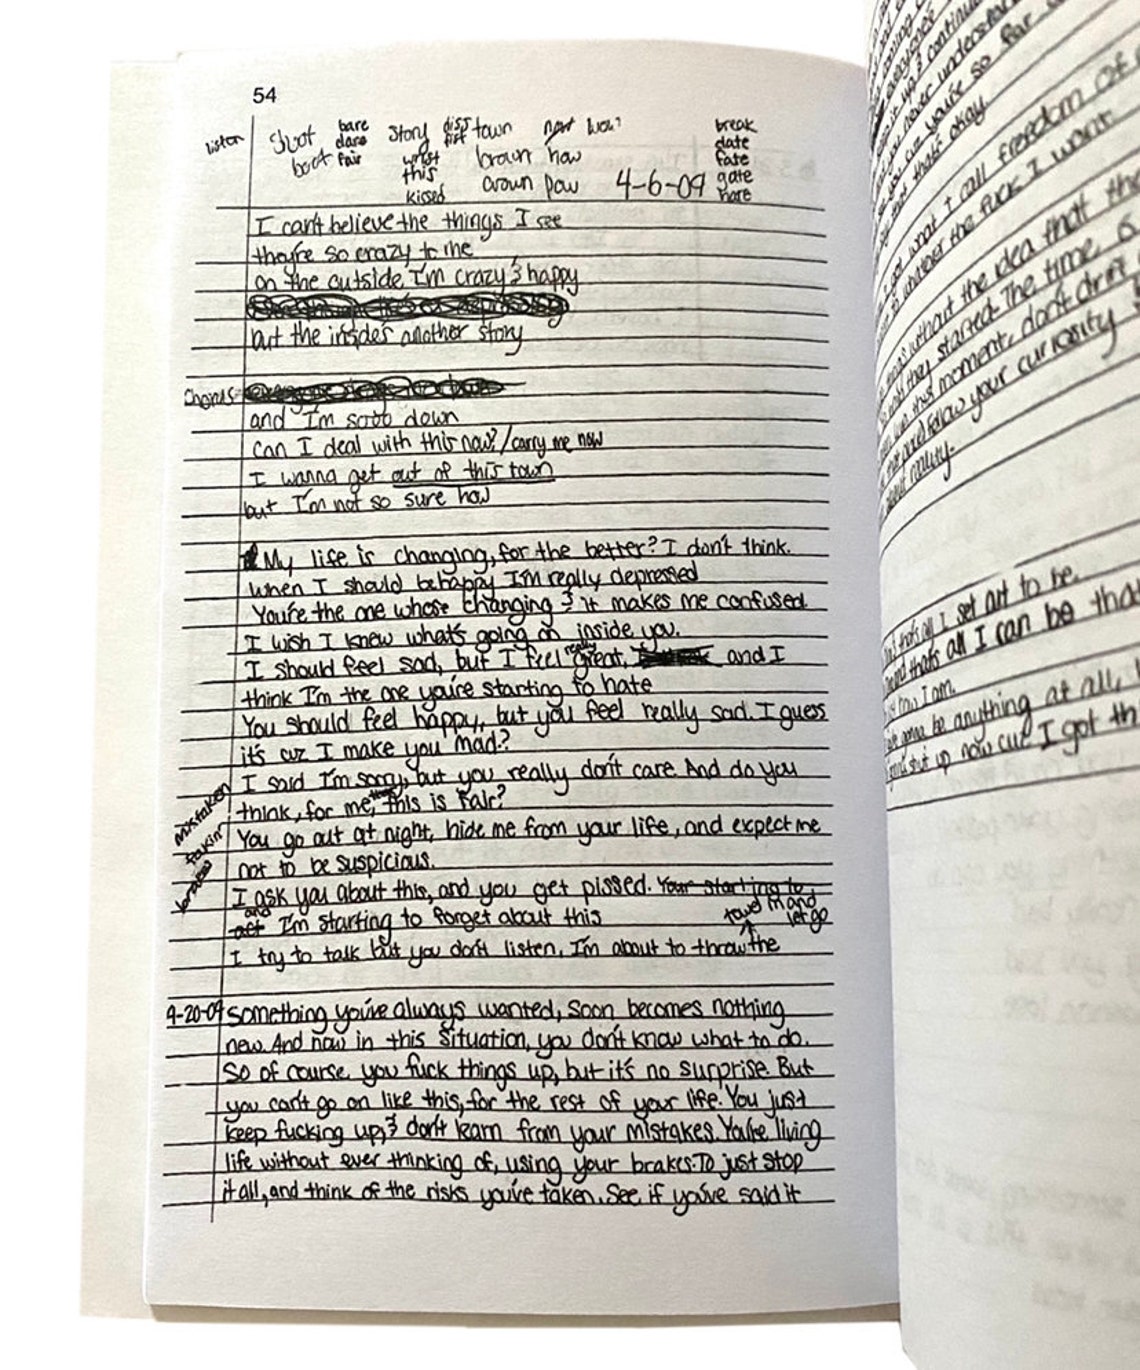 54
listen shot bare story diss town next how?
boot dare fist brown how
fair wrist crown pow 4-6-09
this
kissed
break
date
fate
gate
hate
I can't believe the things I see
they're so crazy to me
on the outside I'm crazy & happy
but the insides another story
Chorus
and I'm sooo down
can I deal with this now? / carry me now
I wanna get out of this town
but I'm not so sure how
My life is changing, for the better? I don't think.
when I should be happy I'm really depressed
You're the one whose changing & it makes me confused.
I wish I knew what's going on inside you.
I should feel sad, but I feel really great, and I
think I'm the one you're starting to hate
You should feel happy, but you feel really sad. I guess
it's cuz I make you mad?
I said I'm sorry, but you really don't care. And do you
think, for me, this is fair?
mistaken
takin'
You go out at night, hide me from your life, and expect me
not to be suspicious.
I ask you about this, and you get pissed. Your starting to
act and I'm starting to forget about this
towel in and
let go
I try to talk but you don't listen, I'm about to throw the
4-20-09 Something you've always wanted, soon becomes nothing
new. And now in this situation, you don't know what to do.
So of course you fuck things up, but it's no surprise. But
you can't go on like this, for the rest of your life. You just
keep fucking up, & don't learn from your mistakes. You're living
life without ever thinking of, using your brakes. To just stop
it all, and think of the risks you've taken. See if you've said it
everyone's
up & continue
you never understand
cuz you're so far
but that's okay
what I call freedom of
whatever the fuck I want
without the idea that the
they started. The time is
this moment, don't drift
and follow your curiosity
about reality.
that's all I set out to be.
that's all I can be that
how I am.
gonna be anything at all,
shut up now cuz I got th